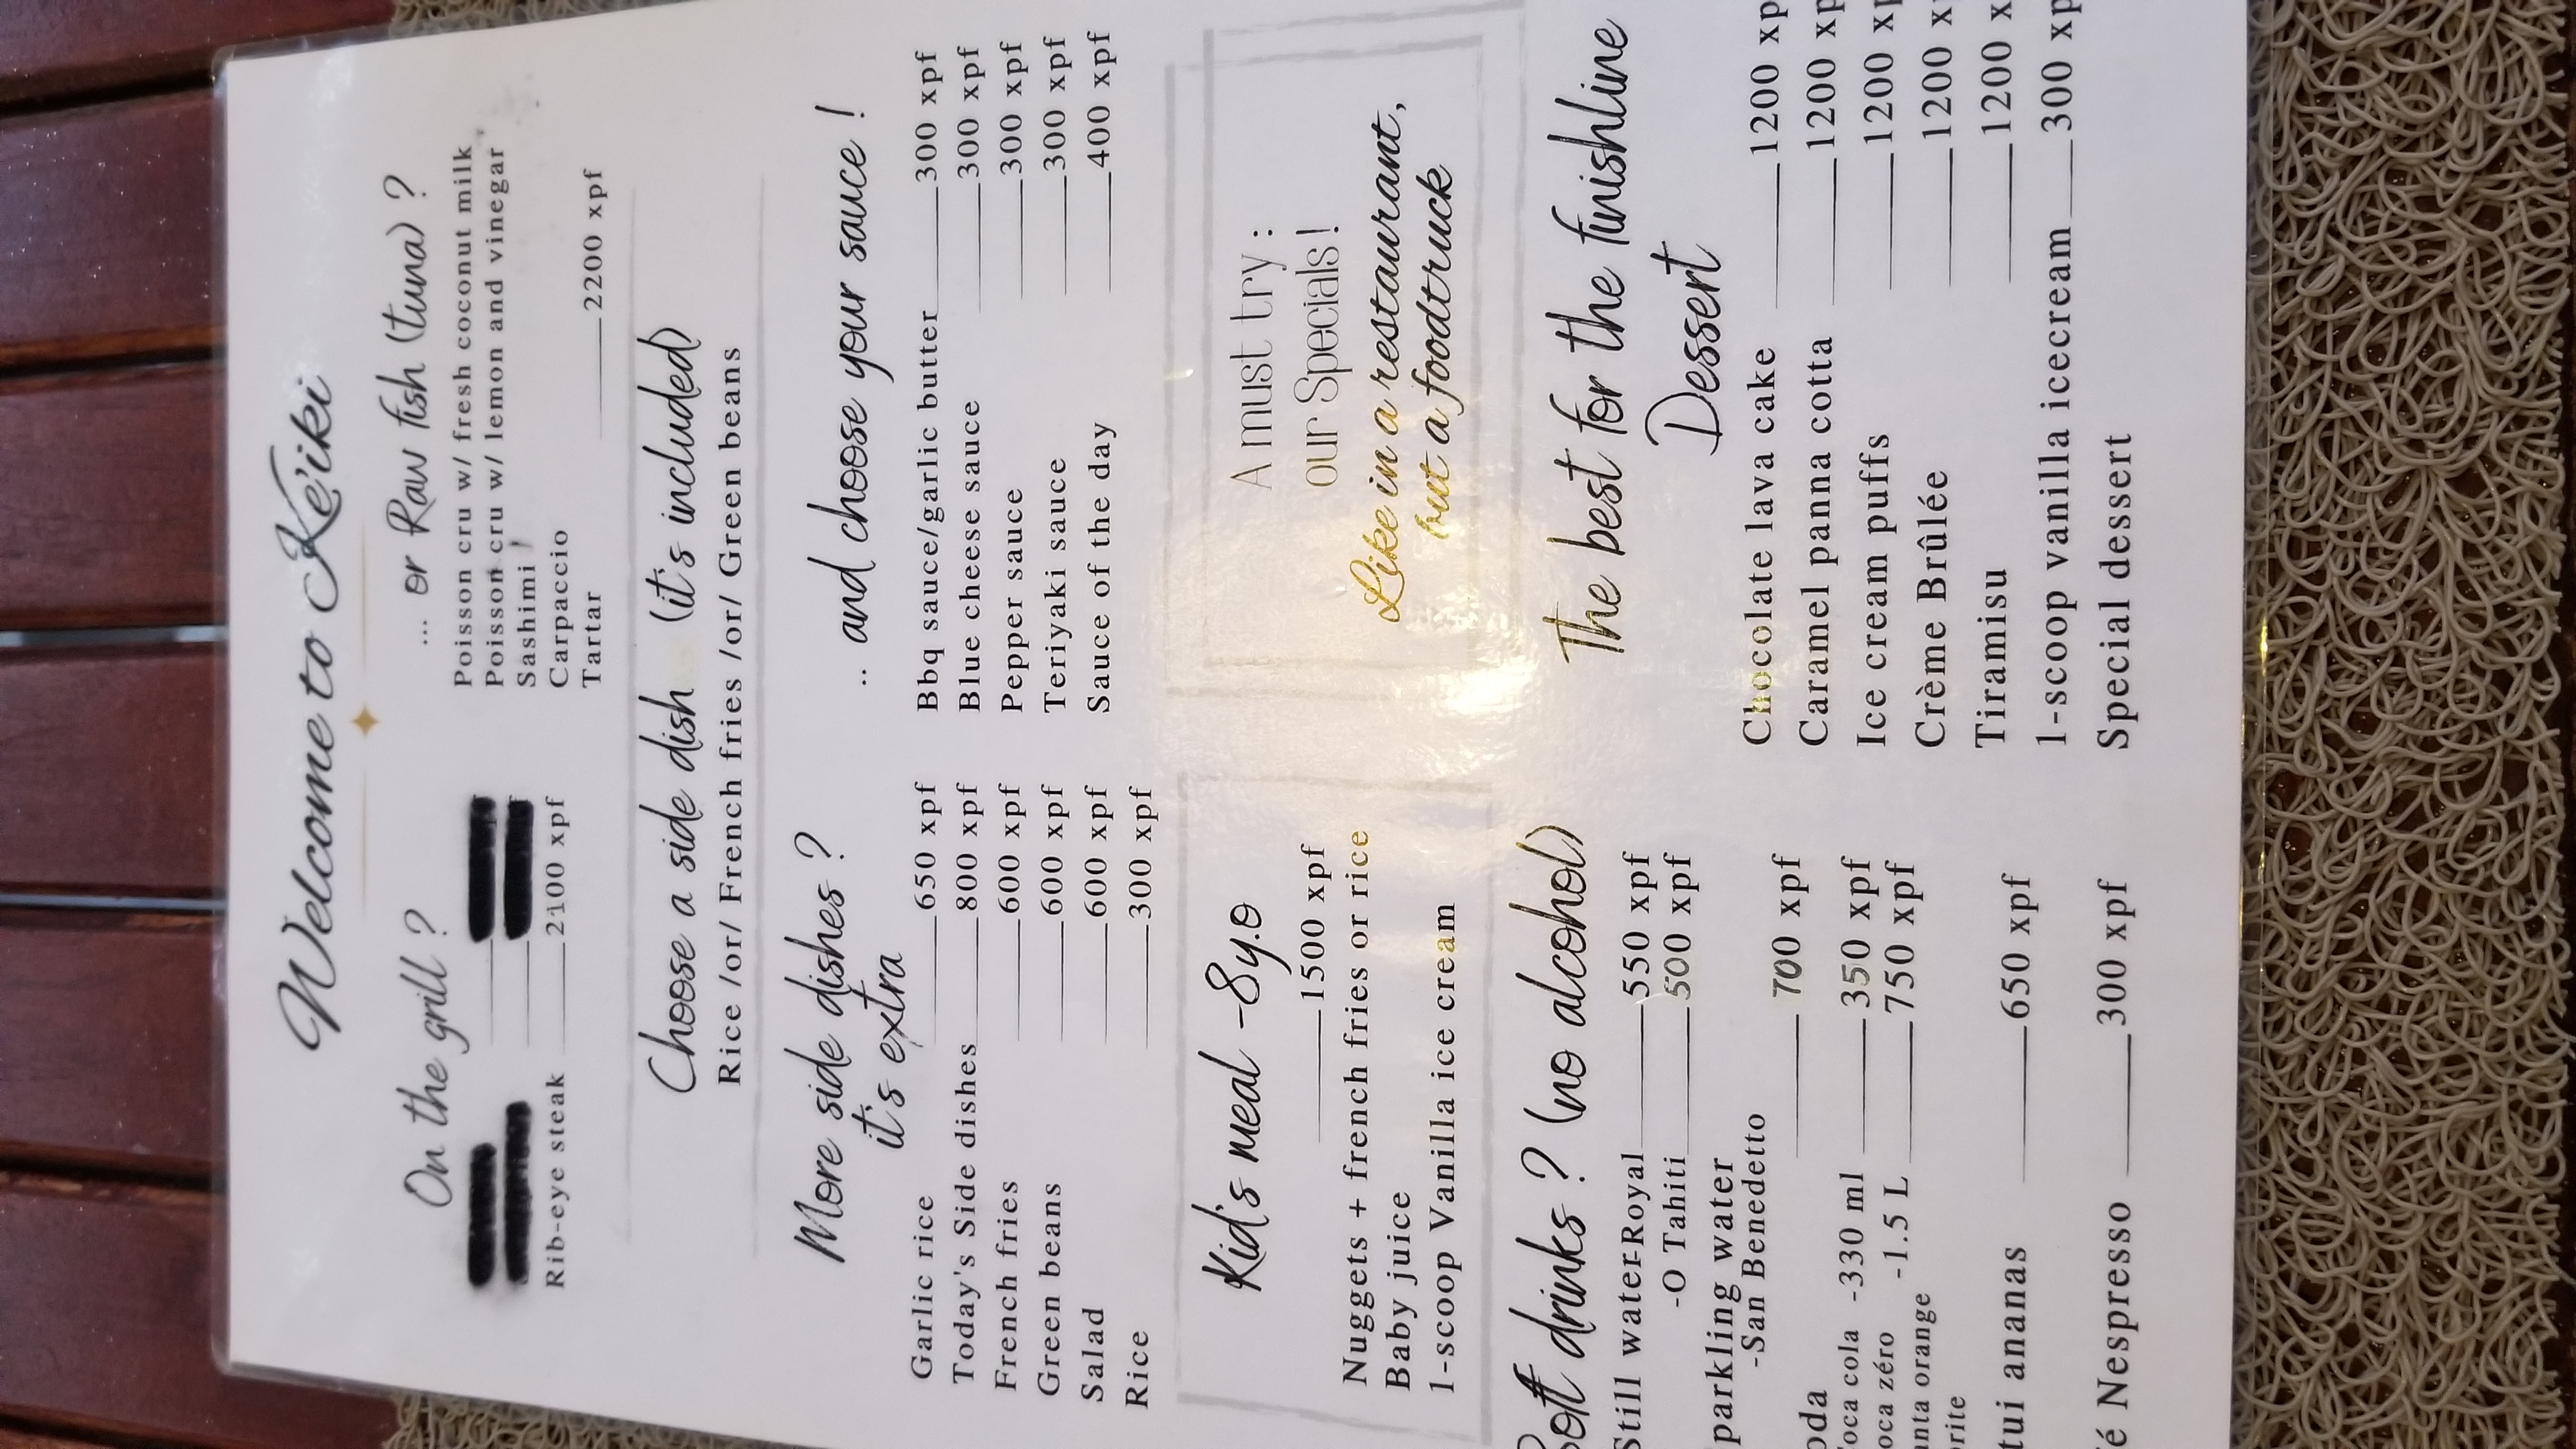 Welcome to Ke'iki
On the grill ?
Rib-eye steak 2100 xpf
... or Raw fish (tuna) ?
Poisson cru w/ fresh coconut milk
Poisson cru w/ lemon and vinegar
Sashimi
Carpaccio
Tartar
2200 xpf
Choose a side dish (it's included)
Rice /or/ French fries /or/ Green beans
More side dishes ?
it's extra
Garlic rice 650 xpf
Today's Side dishes 800 xpf
French fries 600 xpf
Green beans 600 xpf
Salad 600 xpf
Rice 300 xpf
.. and choose your sauce !
Bbq sauce/garlic butter 300 xpf
Blue cheese sauce 300 xpf
Pepper sauce 300 xpf
Teriyaki sauce 300 xpf
Sauce of the day 400 xpf
Kid's meal -8y.o
1500 xpf
Nuggets + french fries or rice
Baby juice
1-scoop Vanilla ice cream
A must try :
our Specials!
Like in a restaurant,
but a foodtruck
Soft drinks ? (no alcohol)
Still water-Royal 550 xpf
-O Tahiti 500 xpf
parkling water
-San Benedetto
700 xpf
oda
oca cola -330 ml 350 xpf
oca zéro -1.5 L 750 xpf
anta orange
rite
tui ananas 650 xpf
é Nespresso 300 xpf
The best for the finishline
Dessert
Chocolate lava cake 1200 xp
Caramel panna cotta 1200 xp
Ice cream puffs 1200 xp
Crème Brûlée 1200 x
Tiramisu 1200 x
1-scoop vanilla icecream 300 xp
Special dessert